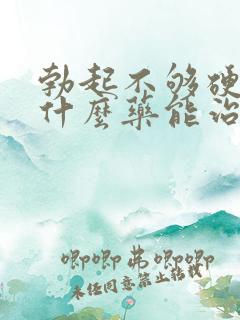 勃起不够硬
什麽药能治
唧唧弟唧唧
未经同意禁止转载